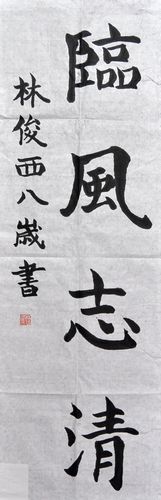 臨風志清
林俊西八歲書